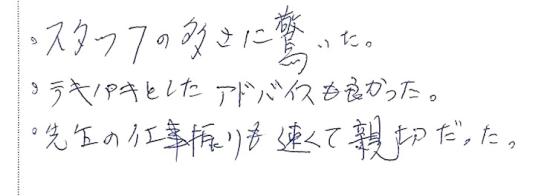 。スタッフの多さに驚いた。
。テキパキとしたアドバイスも良かった。
。先生の仕事振りも速くて親切だった。